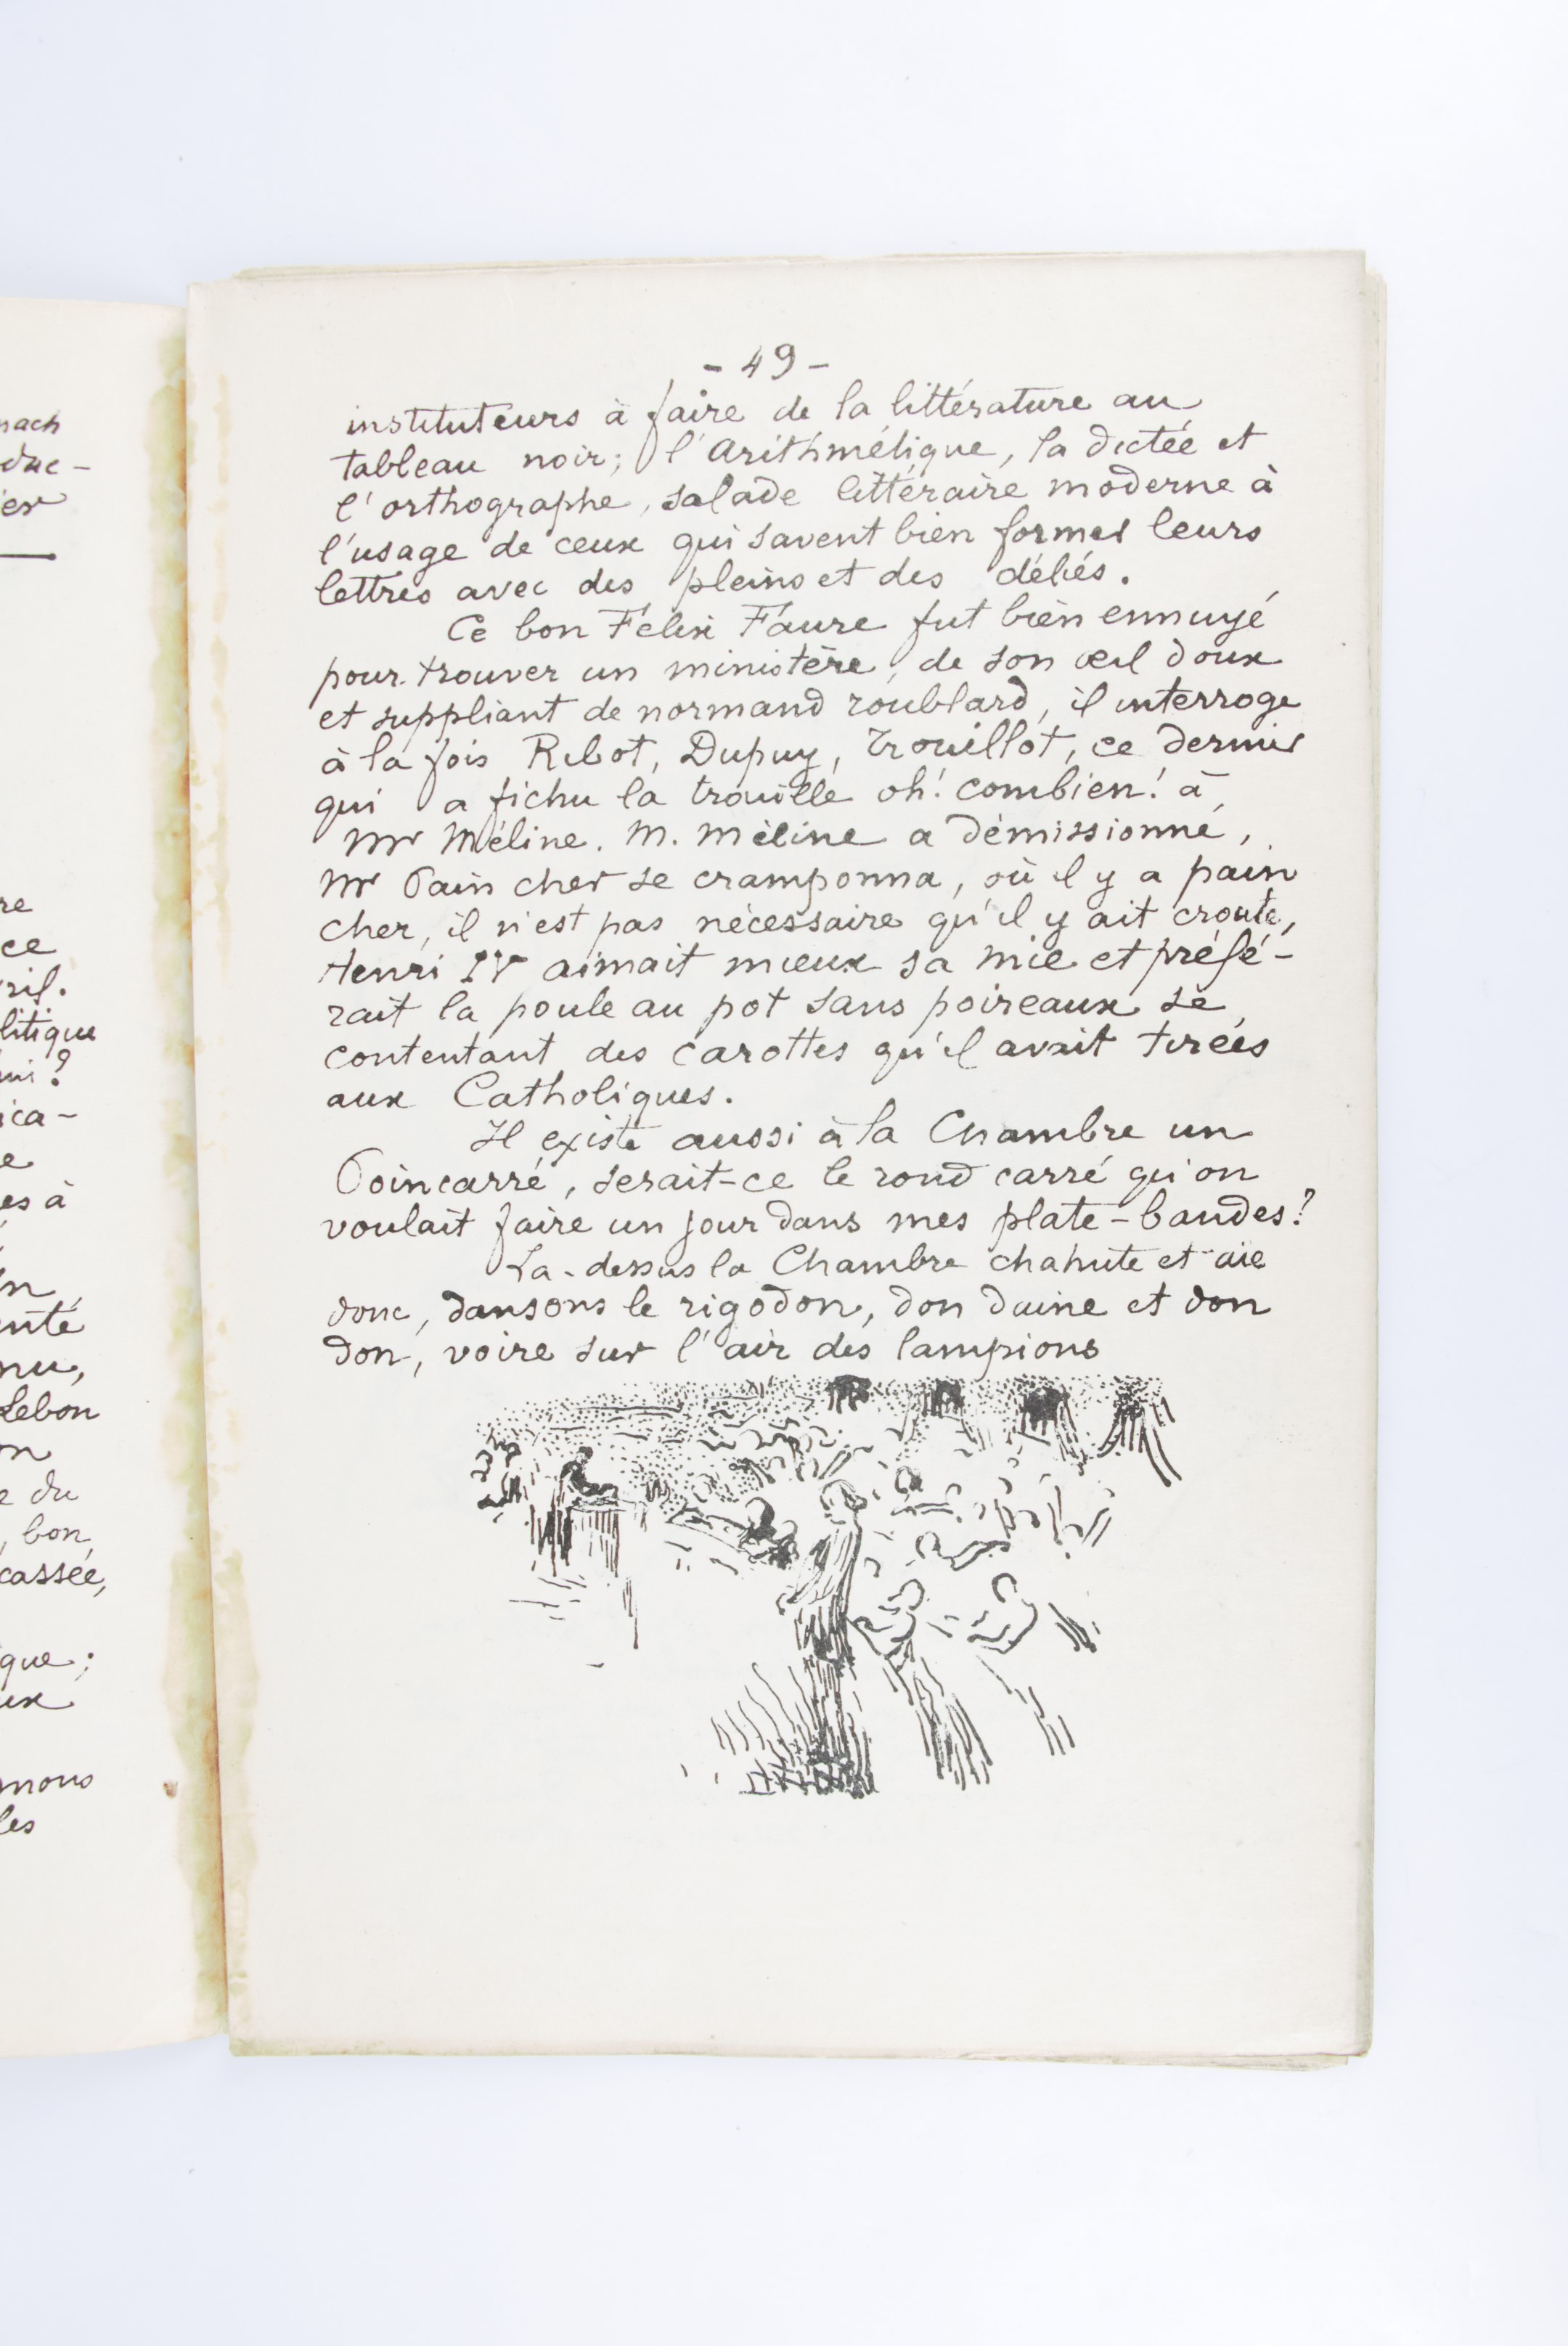 nach
duc-
er
re
ce
ril.
litique
ica-
e
es à
n
nté
nu,
Lebon
n
e du
, bon
cassée,
que;
ux
mons
les
- 49 -
instituteurs à faire de la littérature au
tableau noir; l'Arithmétique, la dictée et
l'orthographe, salade littéraire moderne à
l'usage de ceux qui savent bien former leurs
lettres avec des pleins et des déliés.
Ce bon Félix Faure fut bien ennuyé
pour trouver un ministère, de son œil doux
et suppliant de normand roublard, il interroge
à la fois Ribot, Dupuy, Trouillot, ce dernier
qui a fichu la trouille oh! combien! à
Mr Méline. M. Méline a démissionné,
Mr Pain cher se cramponna, où il y a pain
cher, il n'est pas nécessaire qu'il y ait croute,
Henri IV aimait mieux sa mie et préfé-
rait la poule au pot sans poireaux se
contentant des carottes qu'il avait tirées
aux Catholiques.
Il existe aussi à la Chambre un
Poincarré, serait-ce le rond carré qu'on
voulait faire un jour dans mes plate-bandes?
La-dessus la Chambre chahute et aie
donc, dansons le rigodon, don daine et don
don, voire sur l'air des lampions